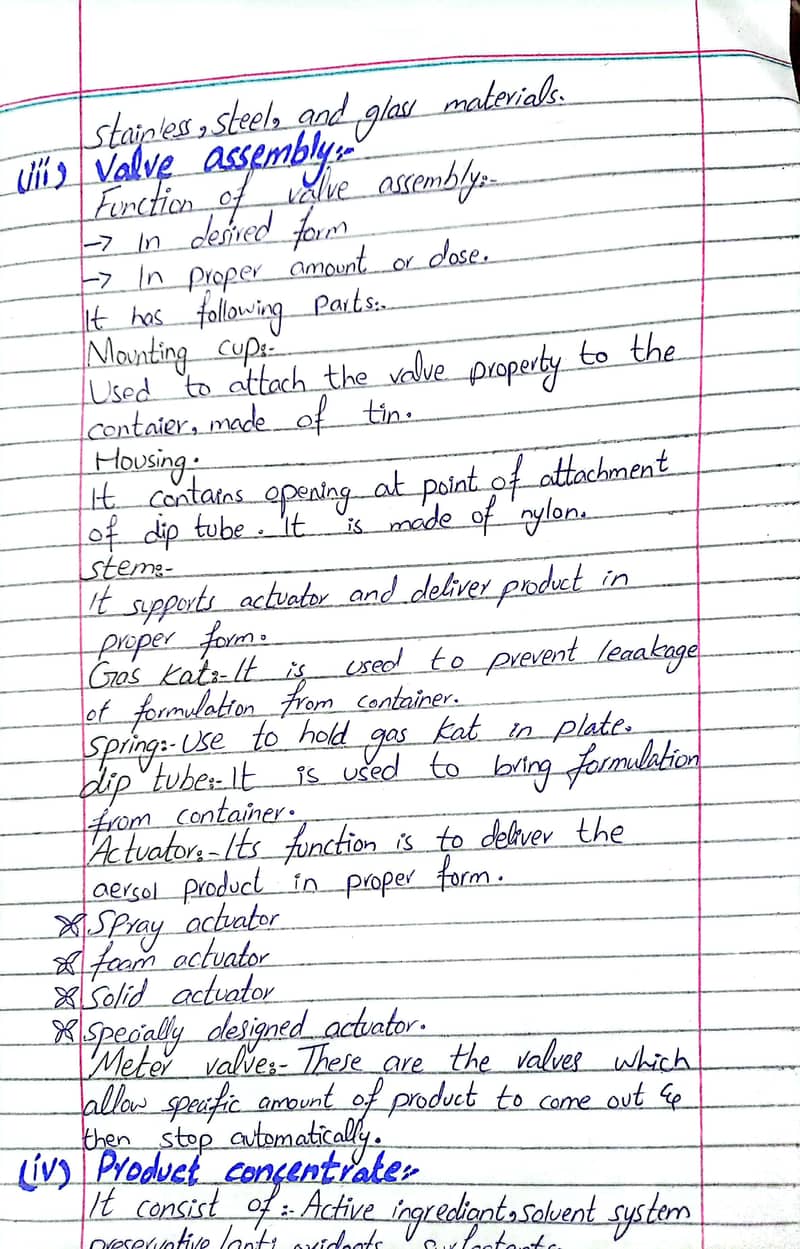 stainless, steel, and glass materials.
(iii) Valve assembly:-
Function of valve assembly:-
→ In desired form
→ In proper amount or dose.
It has following parts:.
Mounting cup:-
Used to attach the valve property to the
contaier, made of tin.
Housing.
It contains opening at point of attachment
of dip tube. It is made of nylon.
stem:-
It supports actuator and deliver product in
proper form.
Gas kat:-It is used to prevent leaakage
of formulation from container.
Spring:-Use to hold gas kat in plate.
dip tube:-It is used to bring formulation
from container.
Actuator:-Its function is to deliver the
aersol product in proper form.
※ Spray actuator
※ foam actuator
※ Solid actuator
※ Specially designed actuator.
Meter valve:-These are the valves which
allow speific amount of product to come out &
then stop automatically.
(iv) Product concentrate:-
It consist of:-Active ingrediant, solvent system
preservative/anti oxidants, surfactants.